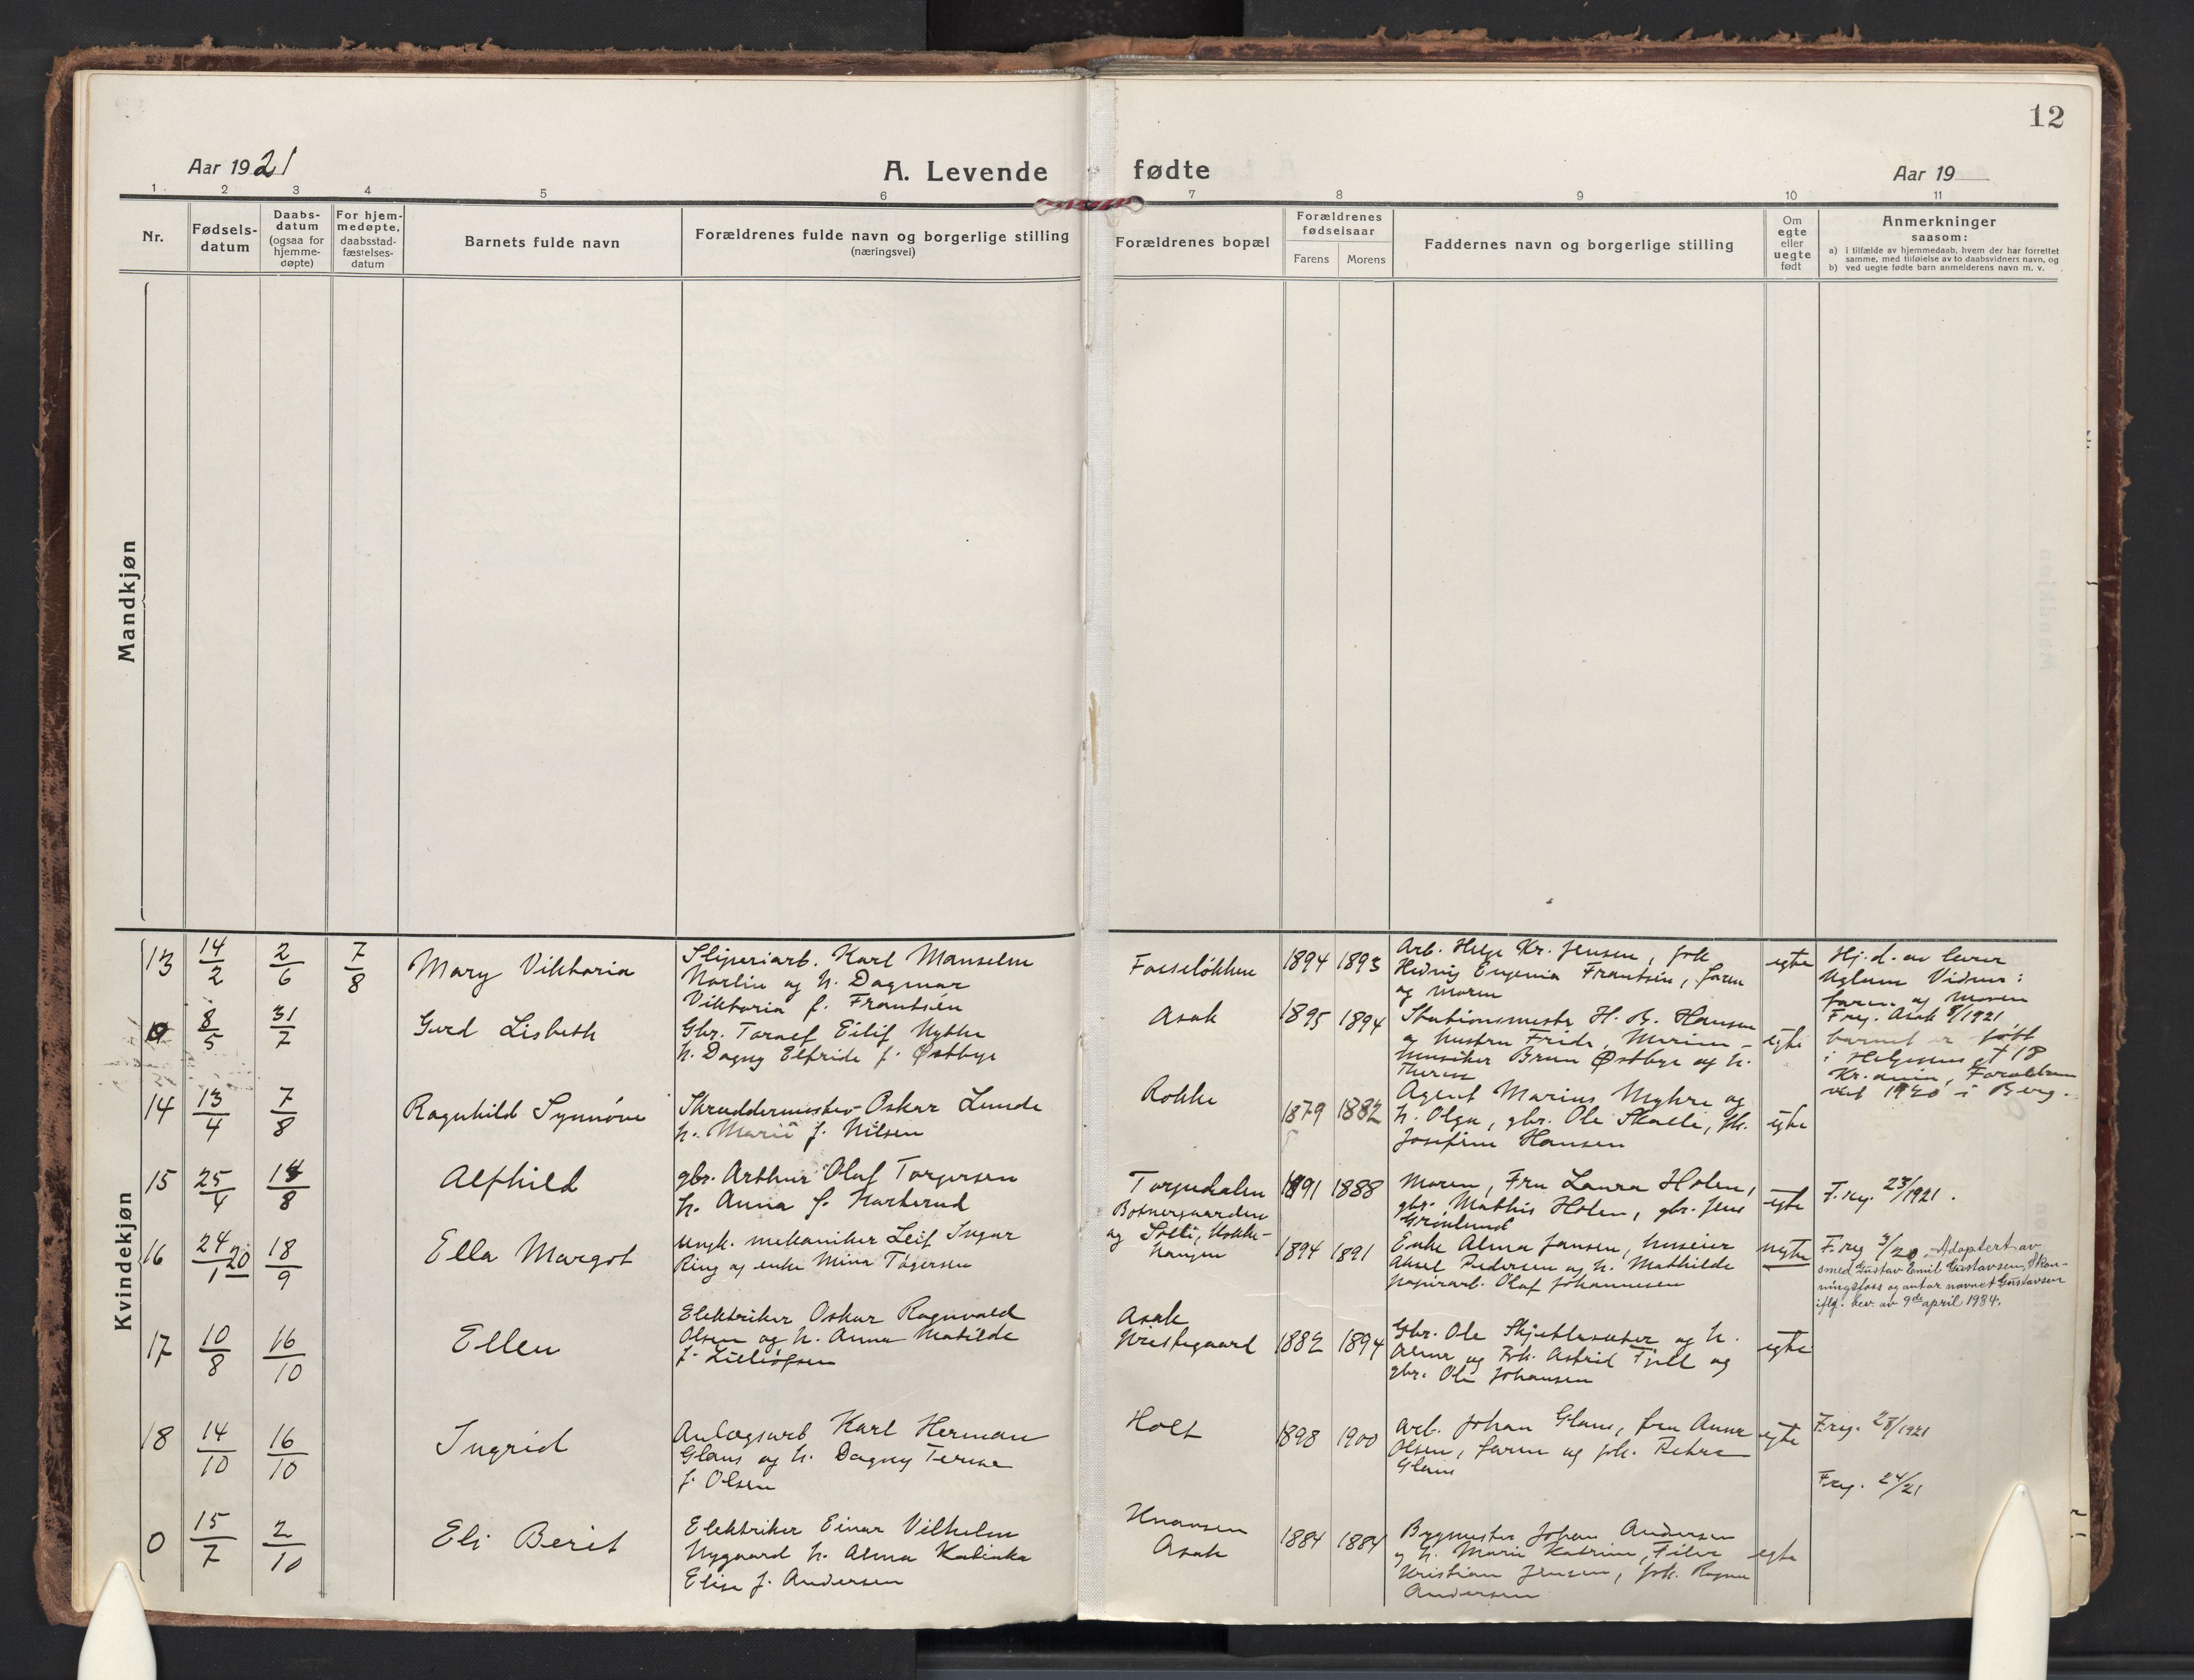 12
Aar 1921
A. Levende fødte
Aar 19
1 2 3 4 5 6 7 8 9 10 11
Nr.
Fødsels-
datum
Daabs-
datum
(ogsaa for
hjemme-
døpte)
For hjem-
medøpte,
daabsstad-
fæstelses-
datum
Barnets fulde navn
Forældrenes fulde navn og borgerlige stilling
(næringsvei)
Forældrenes bopæl
Forældrenes
fødselsaar
Farens Morens
Faddernes navn og borgerlige stilling
Om
egte
eller
uegte
født
Anmerkninger
saasom:
a) i tilfælde av hjemmedaab, hvem der har forrettet
samme, med tilføielse av to daabsvidners navn, og
b) ved uegte fødte barn anmelderens navn m. v.
Mandkjøn
Kvindekjøn
13 14/2 2/6 7/8 Mary Viktoria
Sliperiarb. Karl Manselm
Norlin og h. Dagmar
Viktoria f. Frantsén
1894 1893
Arb. Helge Kr. Jensen, frk
Hedvig Eugenia Frantsén, faren
og moren
egte
Hj. d. av lærer
Uglum Vidner:
faren og moren
0 8/5 31/7 Gerd Lisbeth
Gbr. Toralf Eilif Nythe
h. Dagny Elfride f. Østbye
Asak
1895 1894
Stationsmestr H. B. Hansen
og hustru Frida,
musiker Brun Østbye og h.
Therese
egte
F.reg. Asak 8/1921
barnet er født
i Helgesens st 18
Kr.ania, Forældrene
viet 1920 i Berg.
14 13/4 7/8 Ragnhild Synnöve
Skræddermester Oskar Lunde
h. Marie f. Nilsen
Rokke
1879 1882
Agent Marius Myhre og
h. Olga, gbr. Ole Skolle, frk.
Josefine Hansen
egte
15 25/4 14/8 Alfhild
gbr. Arthur Olaf Torgersen
h. Anna f. Harkerud
Torpedalen
1891 1888
Moren, Fru Laura Holen,
gbr. Mathis Holen, gbr. Jens
Grönlund
egte
F.reg. 23/1921.
16 24/1 20 18/9 Ella Margot
ungk. mekaniker Leif Ingar
Ring og enke Mina Tögersen
Botnergaarden
og Solli, Hokke-
haugen
1894 1891
Enke Alma Jansen, huseier
Aksel Pedersen og h. Mathilde
papirarb. Olaf Johannesen
uegte
F.reg 3/20. Adoptert av
smed Gustav Emil Gustavsen, Skon-
ningsfoss og antar navnet Gustavsen
iflg. bev. av 9de april 1934.
17 10/8 16/10 Ellen
Elektriker Oskar Ragnvald
Olsen og h. Anna Matilde
f. Lilliöysen
Asak
1882 1894
Gbr. Ole Skjeblesæter og h.
Alma og Frk. Astrid Fjell og
gbr. Ole Johansen
egte
18 14/10 16/10 Ingrid
Anlægsarb Karl Herman
Glans og h. Dagny Terese
f. Olsen
Holt
1898 1900
Arb. Johan Glans, fru Anna
Olsen, faren og frk. Petra
Glans
egte
F.reg. 28/1921
0 15/7 2/10 Eli Berit
Elektriker Einar Vilhelm
Nygaard h. Alma Kabinka
Elise f. Andersen
Knausen
Asak
1884 1884
Bygmester Johan Andersen
og h. Marie Katrine,
Kristian Jensen, frk. Ragna
Andersen
egte
F.reg. 24/21